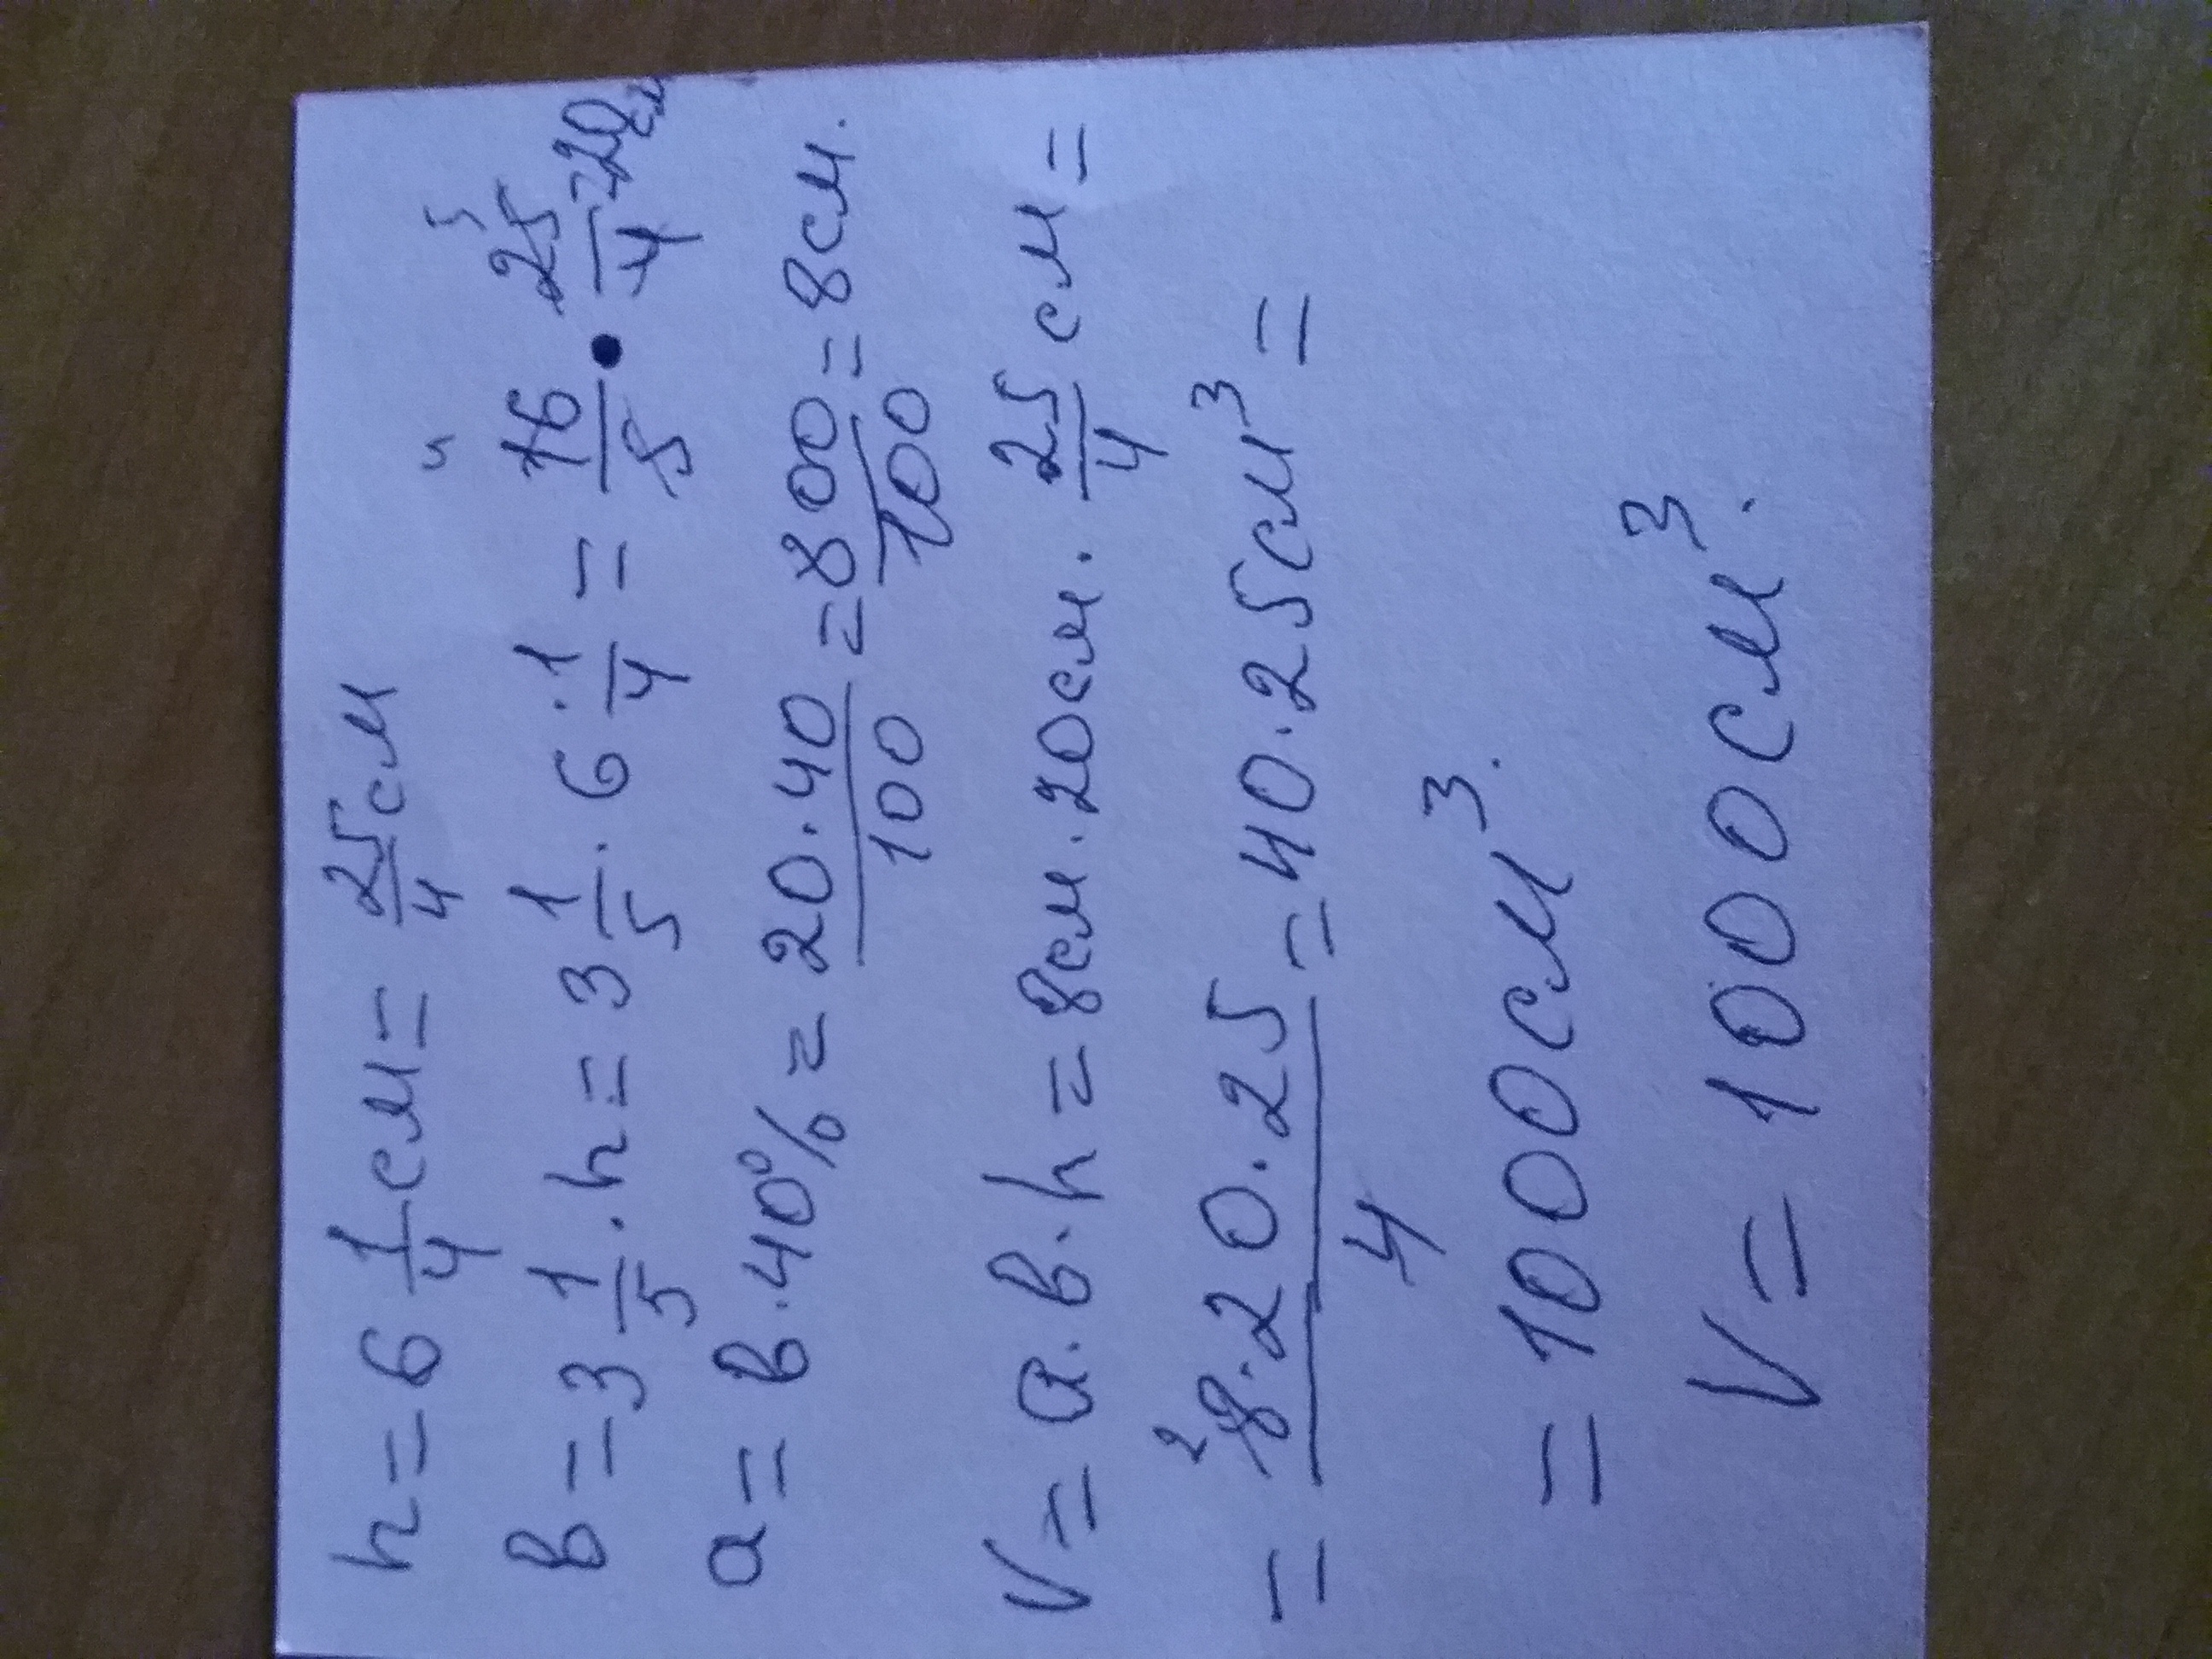 h = 6 1/4 см = 25/4 см
в = 3 1/5 · h = 3 1/5 · 6 1/4 = 16/5 · 25/4 = 20
a = в · 40% = 20 · 40/100 = 800/100 = 8 см.
V = a · в · h = 8 см · 20 см · 25/4 см =
= 8 · 20 · 25/4 = 40 · 25 см³ =
= 1000 см³.
V = 1000 см³.